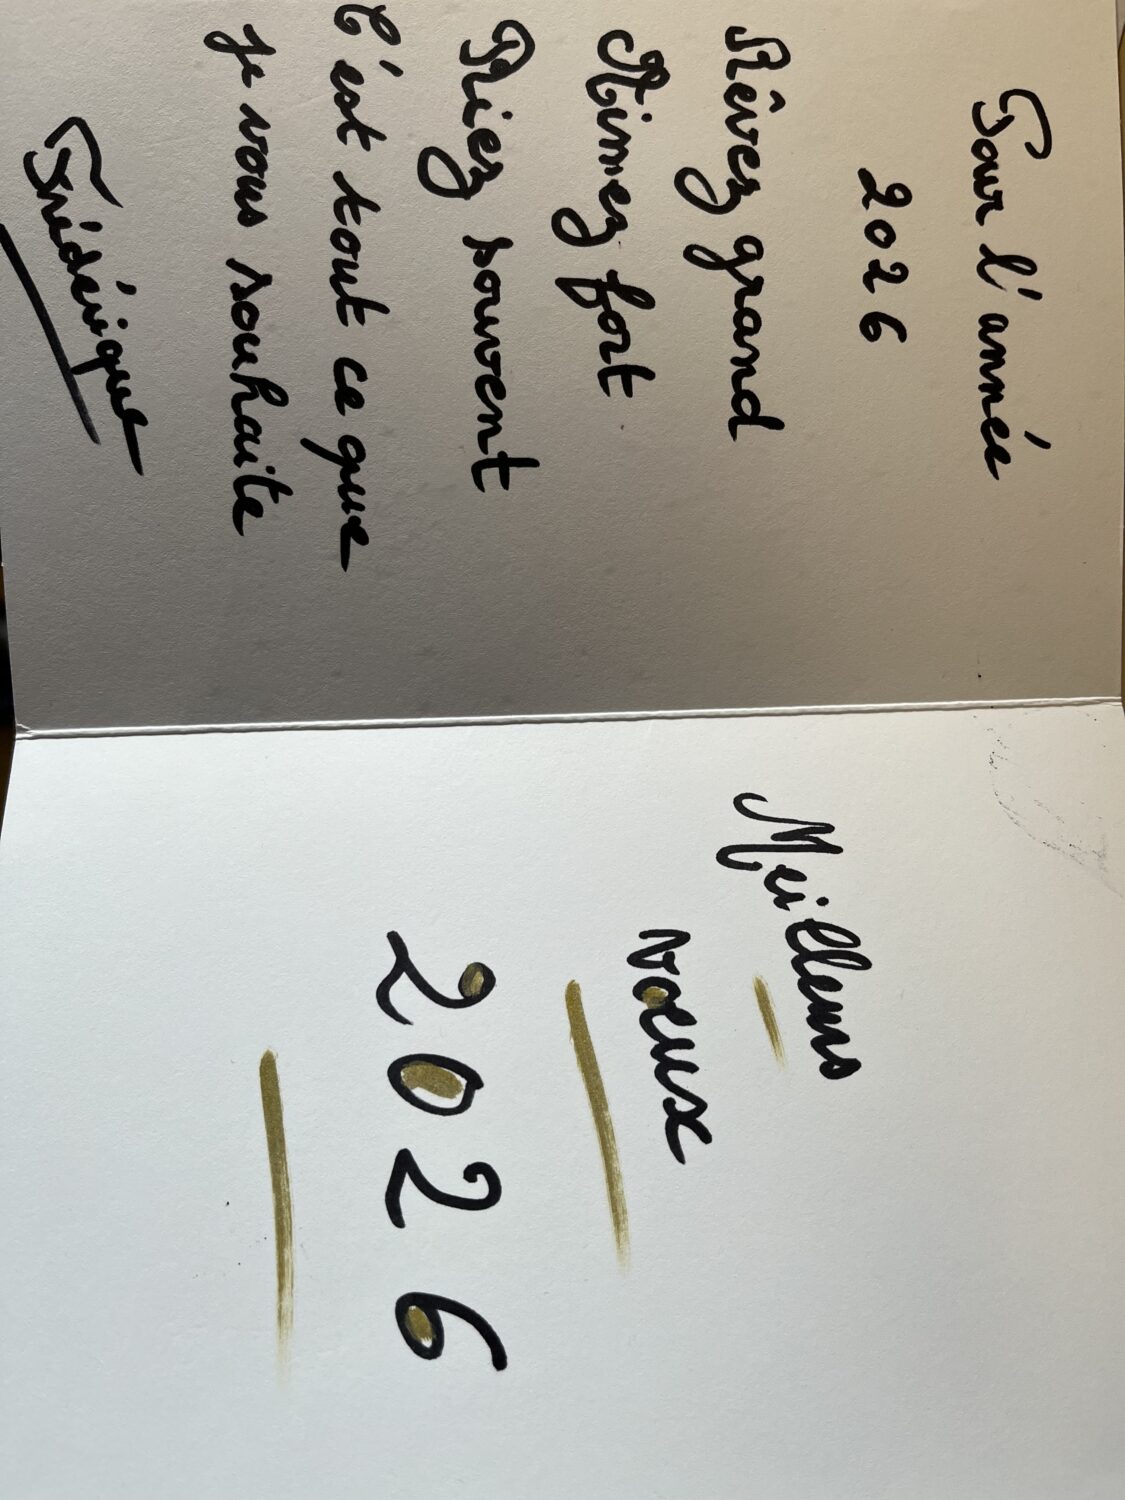 Pour l'année
2026
Rêvez grand
Aimez fort
Riez souvent
C'est tout ce que
je vous souhaite
Frédérique
Meilleurs
vœux
2026